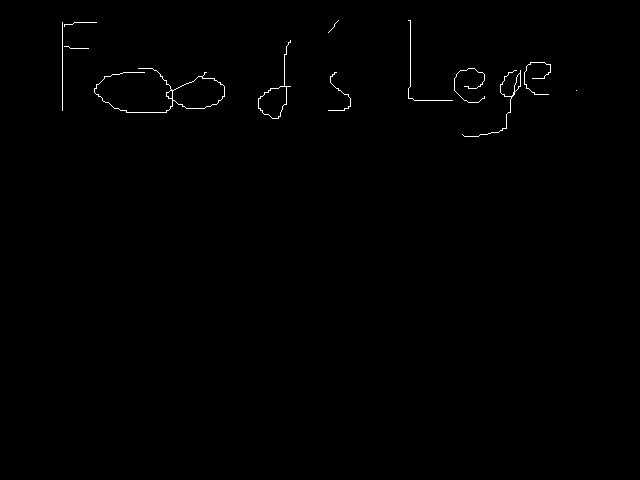 Food's Lege.